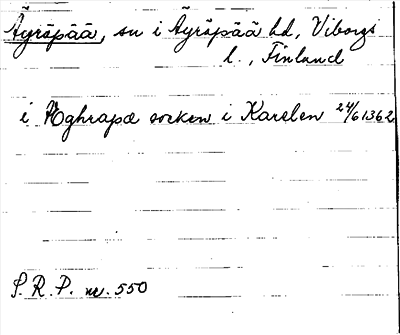 Äyräpää, sn i Äyräpää hd, Viborgs
l., Finland
i Æghrapæ socken i Karelen 24/6 1362
S. R. P. nr. 550